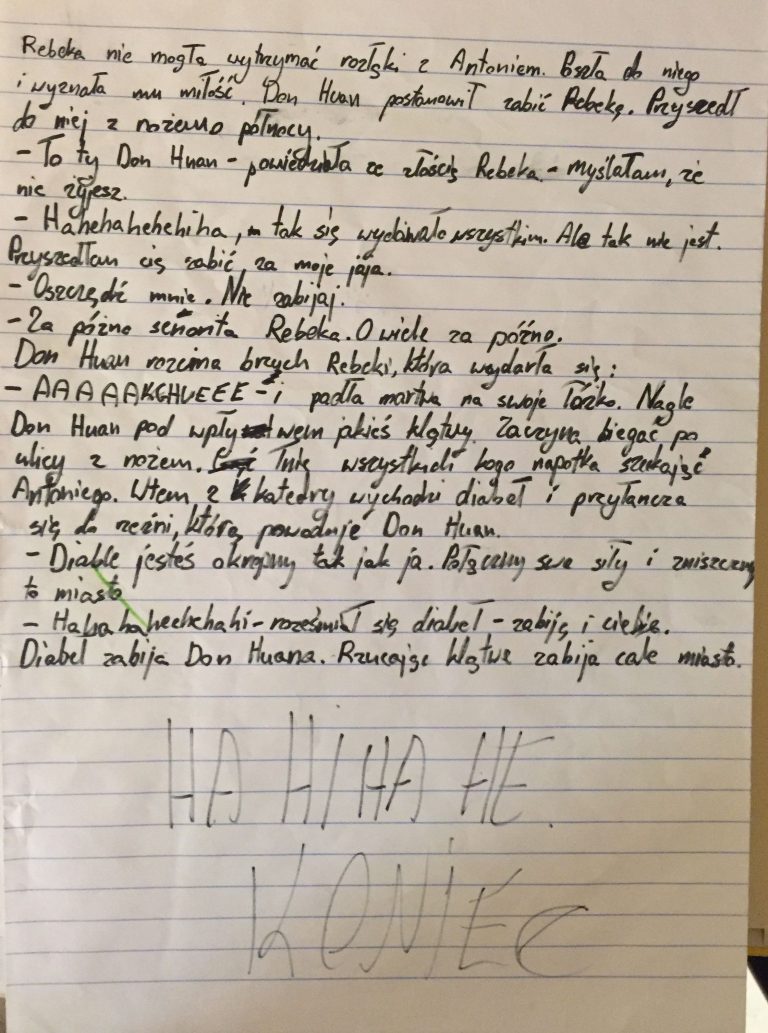 Rebeka nie mogła wytrzymać rozłąki z Antoniem. Poszła do niego
i wyznała mu miłość. Don Huan postanowił zabić Rebekę. Przyszedł
do niej z nożem o północy.
- To ty Don Huan - powiedziała ze złością Rebeka - myślałam, że
nie żyjesz.
- Hahehahehehiha, tak się wydawało wszystkim. Ale tak nie jest.
Przyszedłam cię zabić za moje jaja.
- Oszczędź mnie. Nie zabijaj.
- Za późno señorita Rebeka. O wiele za późno.
Don Huan rozcina brzuch Rebeki, która wydarła się:
- AAAAAKGHUEEE - i padła martwa na swoje łóżko. Nagle
Don Huan pod wpływem jakieś klątwy. Zaczyna biegać po
ulicy z nożem. Tnie wszystkich kogo napotka szukając
Antoniego. Wtem z katedry wychodzi diabeł i przyłancza
się do rzeźni, którą powoduje Don Huan.
- Diable jesteś okropny tak jak ja. Połączmy swe siły i zniszczmy
to miasto
- Hahahahechehahi - roześmiał się diabeł - zabiję i ciebie.
Diabeł zabija Don Huana. Rzucając klątwę zabija całe miasto.
HA HI HA HE.
KONIEC